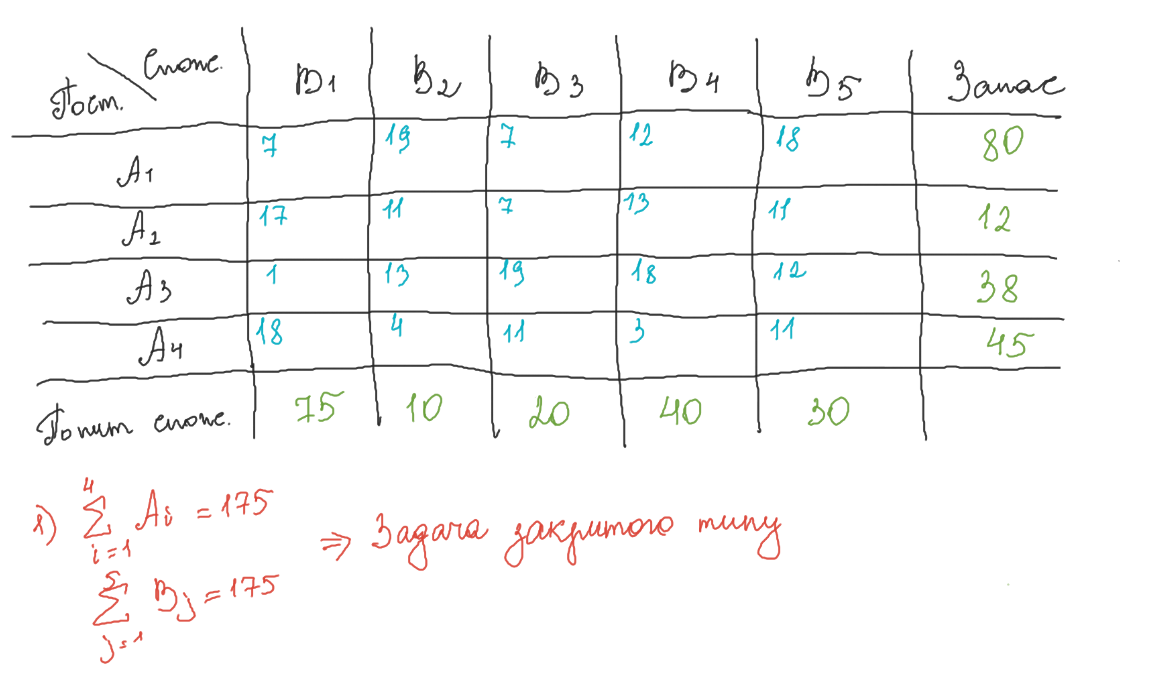 Спож.
Пост.
B1 B2 B3 B4 B5 Запас
A1 7 19 7 12 18 80
A2 17 11 7 13 11 12
A3 1 13 19 18 12 38
A4 18 4 11 3 11 45
Попит спож. 75 10 20 40 30
1) 4∑i=1 Ai = 175
⇒ Задача закритого типу
5∑j=1 Bj = 175